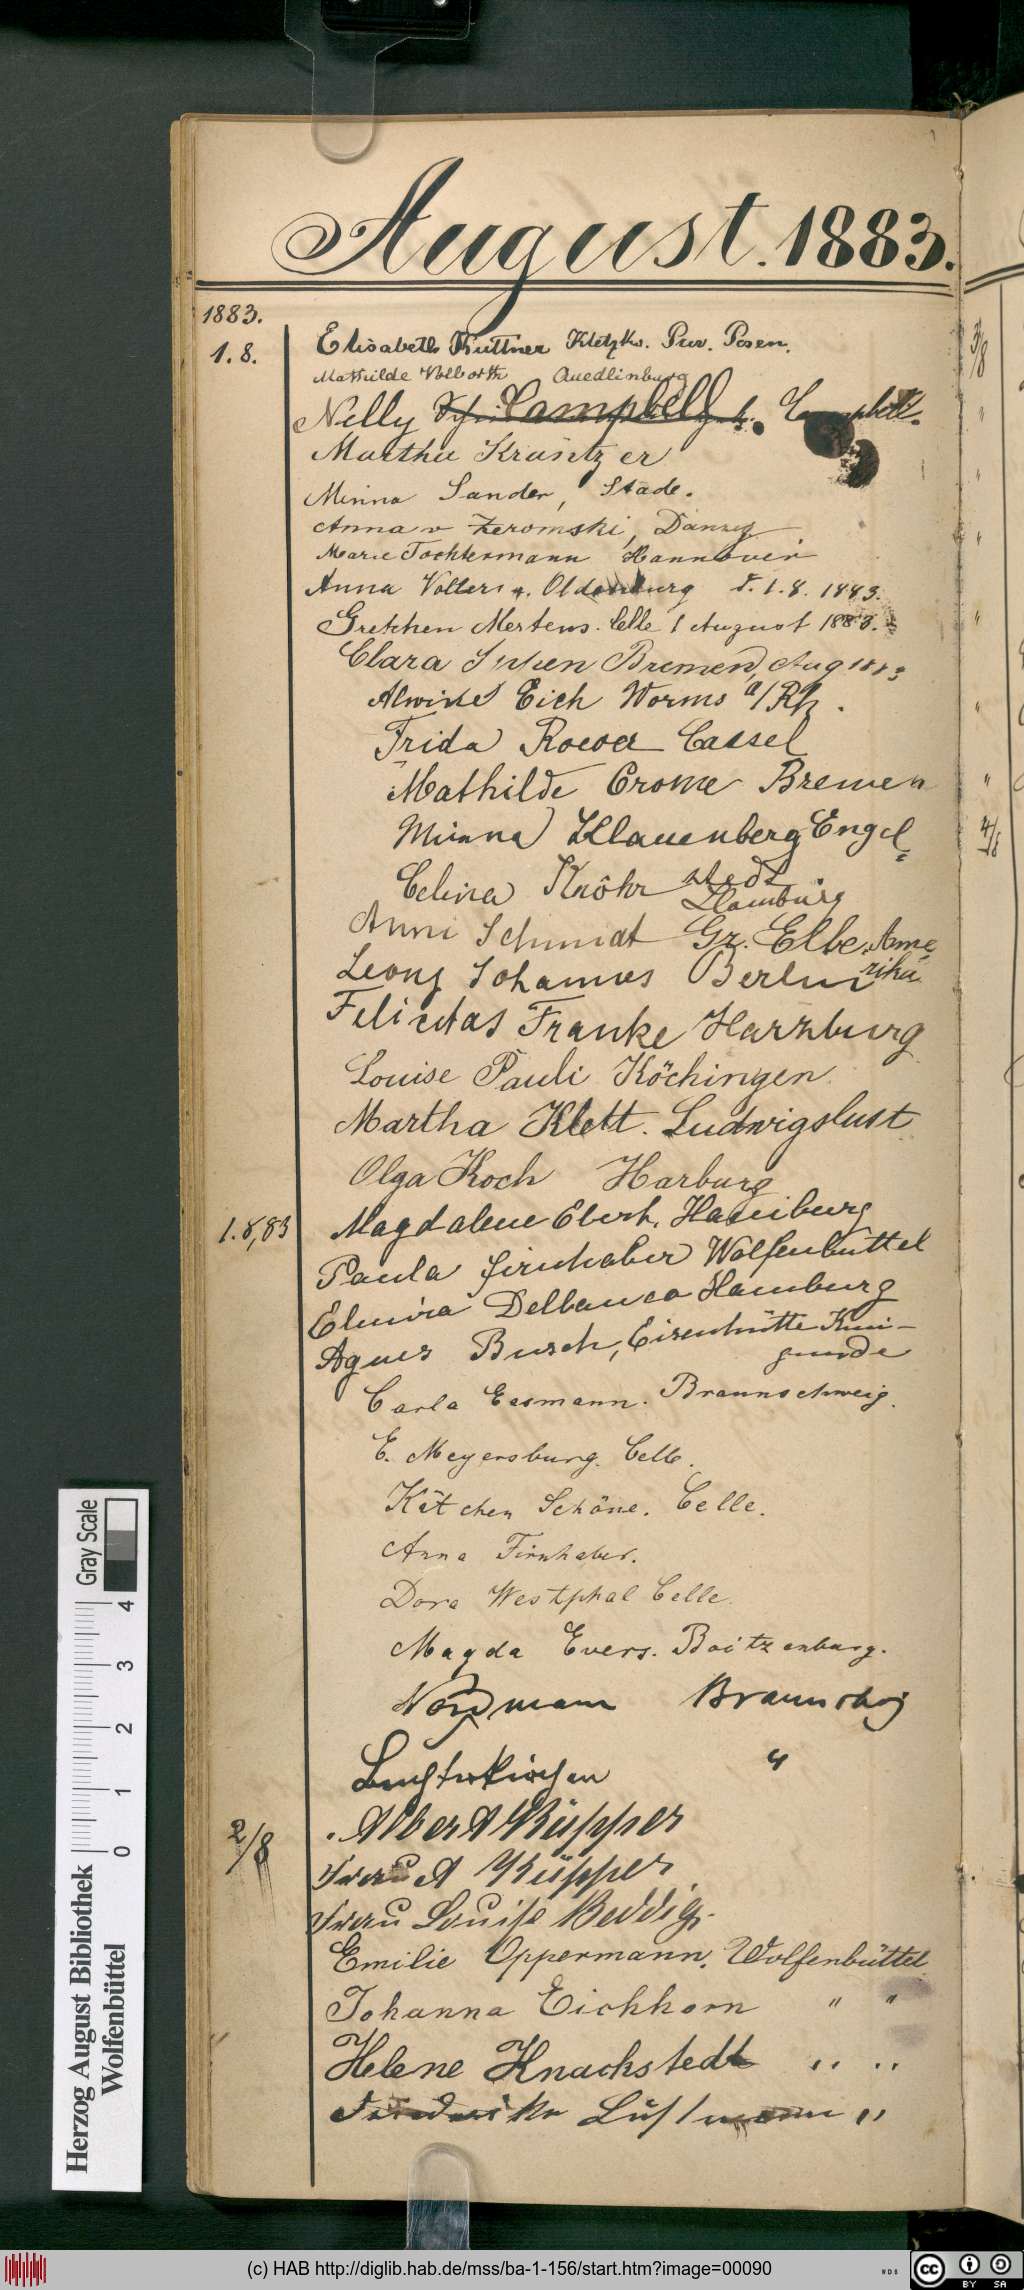 August. 1883.
1883.
1. 8.
Elisabeth Kuttner Kletzko. Prv. Posen.
Mathilde Vollborth Quedlinburg
Nelly Campbell
Martha
Minna Sander, Stade.
Anna v Zeromski, Danzig
Marie Tochtermann Hannover
Anna Volters a. Oldenburg d. 1. 8. 1883.
Gretchen Mertens. Celle 1 August 1883.
Clara Bremen, Aug 1883
Alwine Eich Worms a/Rh.
Frida Roever Cassel
Mathilde Crome Bremen
Minna Klauenberg Engel=
stedt
Celina Knöhr Hamburg
Anni Schmidt Gr. Elbe. Ame
rika
Leony Johannes Berlin
Felicitas Franke Harzburg
Louise Pauli Köchingen
Martha Klett. Ludwigslust
Olga Koch Harburg
1. 8, 83
Magdalene Hamburg
Paula Firnhaber Wolfenbüttel
Elmira Delbanco Hamburg
Agnes Busch, Eisenhütte Kuni-
gunde
Carla Easmann. Braunschweig.
E. Meyersburg. Celle.
Kätchen Schöne. Celle.
Anna Firnhaber.
Dora Westphal Celle.
Magda Evers. Boitzenburg.
Nordmann
"
2/8
Albert Küpper
Frau A Küpper
Frau Louise Beddig.
Emilie Oppermann. Wolfenbüttel
Johanna Eichhorn " "
Helene Knackstedt " "
Friederike "
3/8
"
"
"
"
"
"
"
4/8
Gray Scale
0 1 2 3 4
Herzog August Bibliothek
Wolfenbüttel
(c) HAB http://diglib.hab.de/mss/ba-1-156/start.htm?image=00090
WDB
cc BY SA